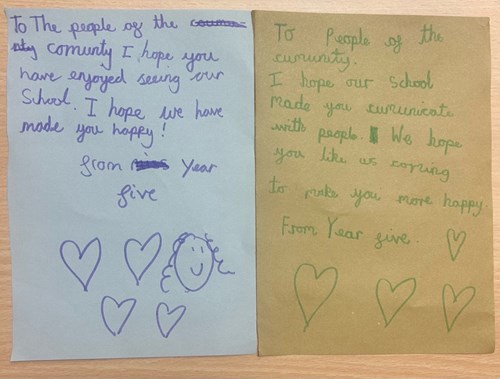 To The people of the
comunty I hope you
have enjoyed seeing our
School. I hope we have
made you happy!
from Year
five
To People of the
cumunity.
I hope our School
made you cumunicate
with people. We hope
you like us coming
to make you more happy.
From Year five.